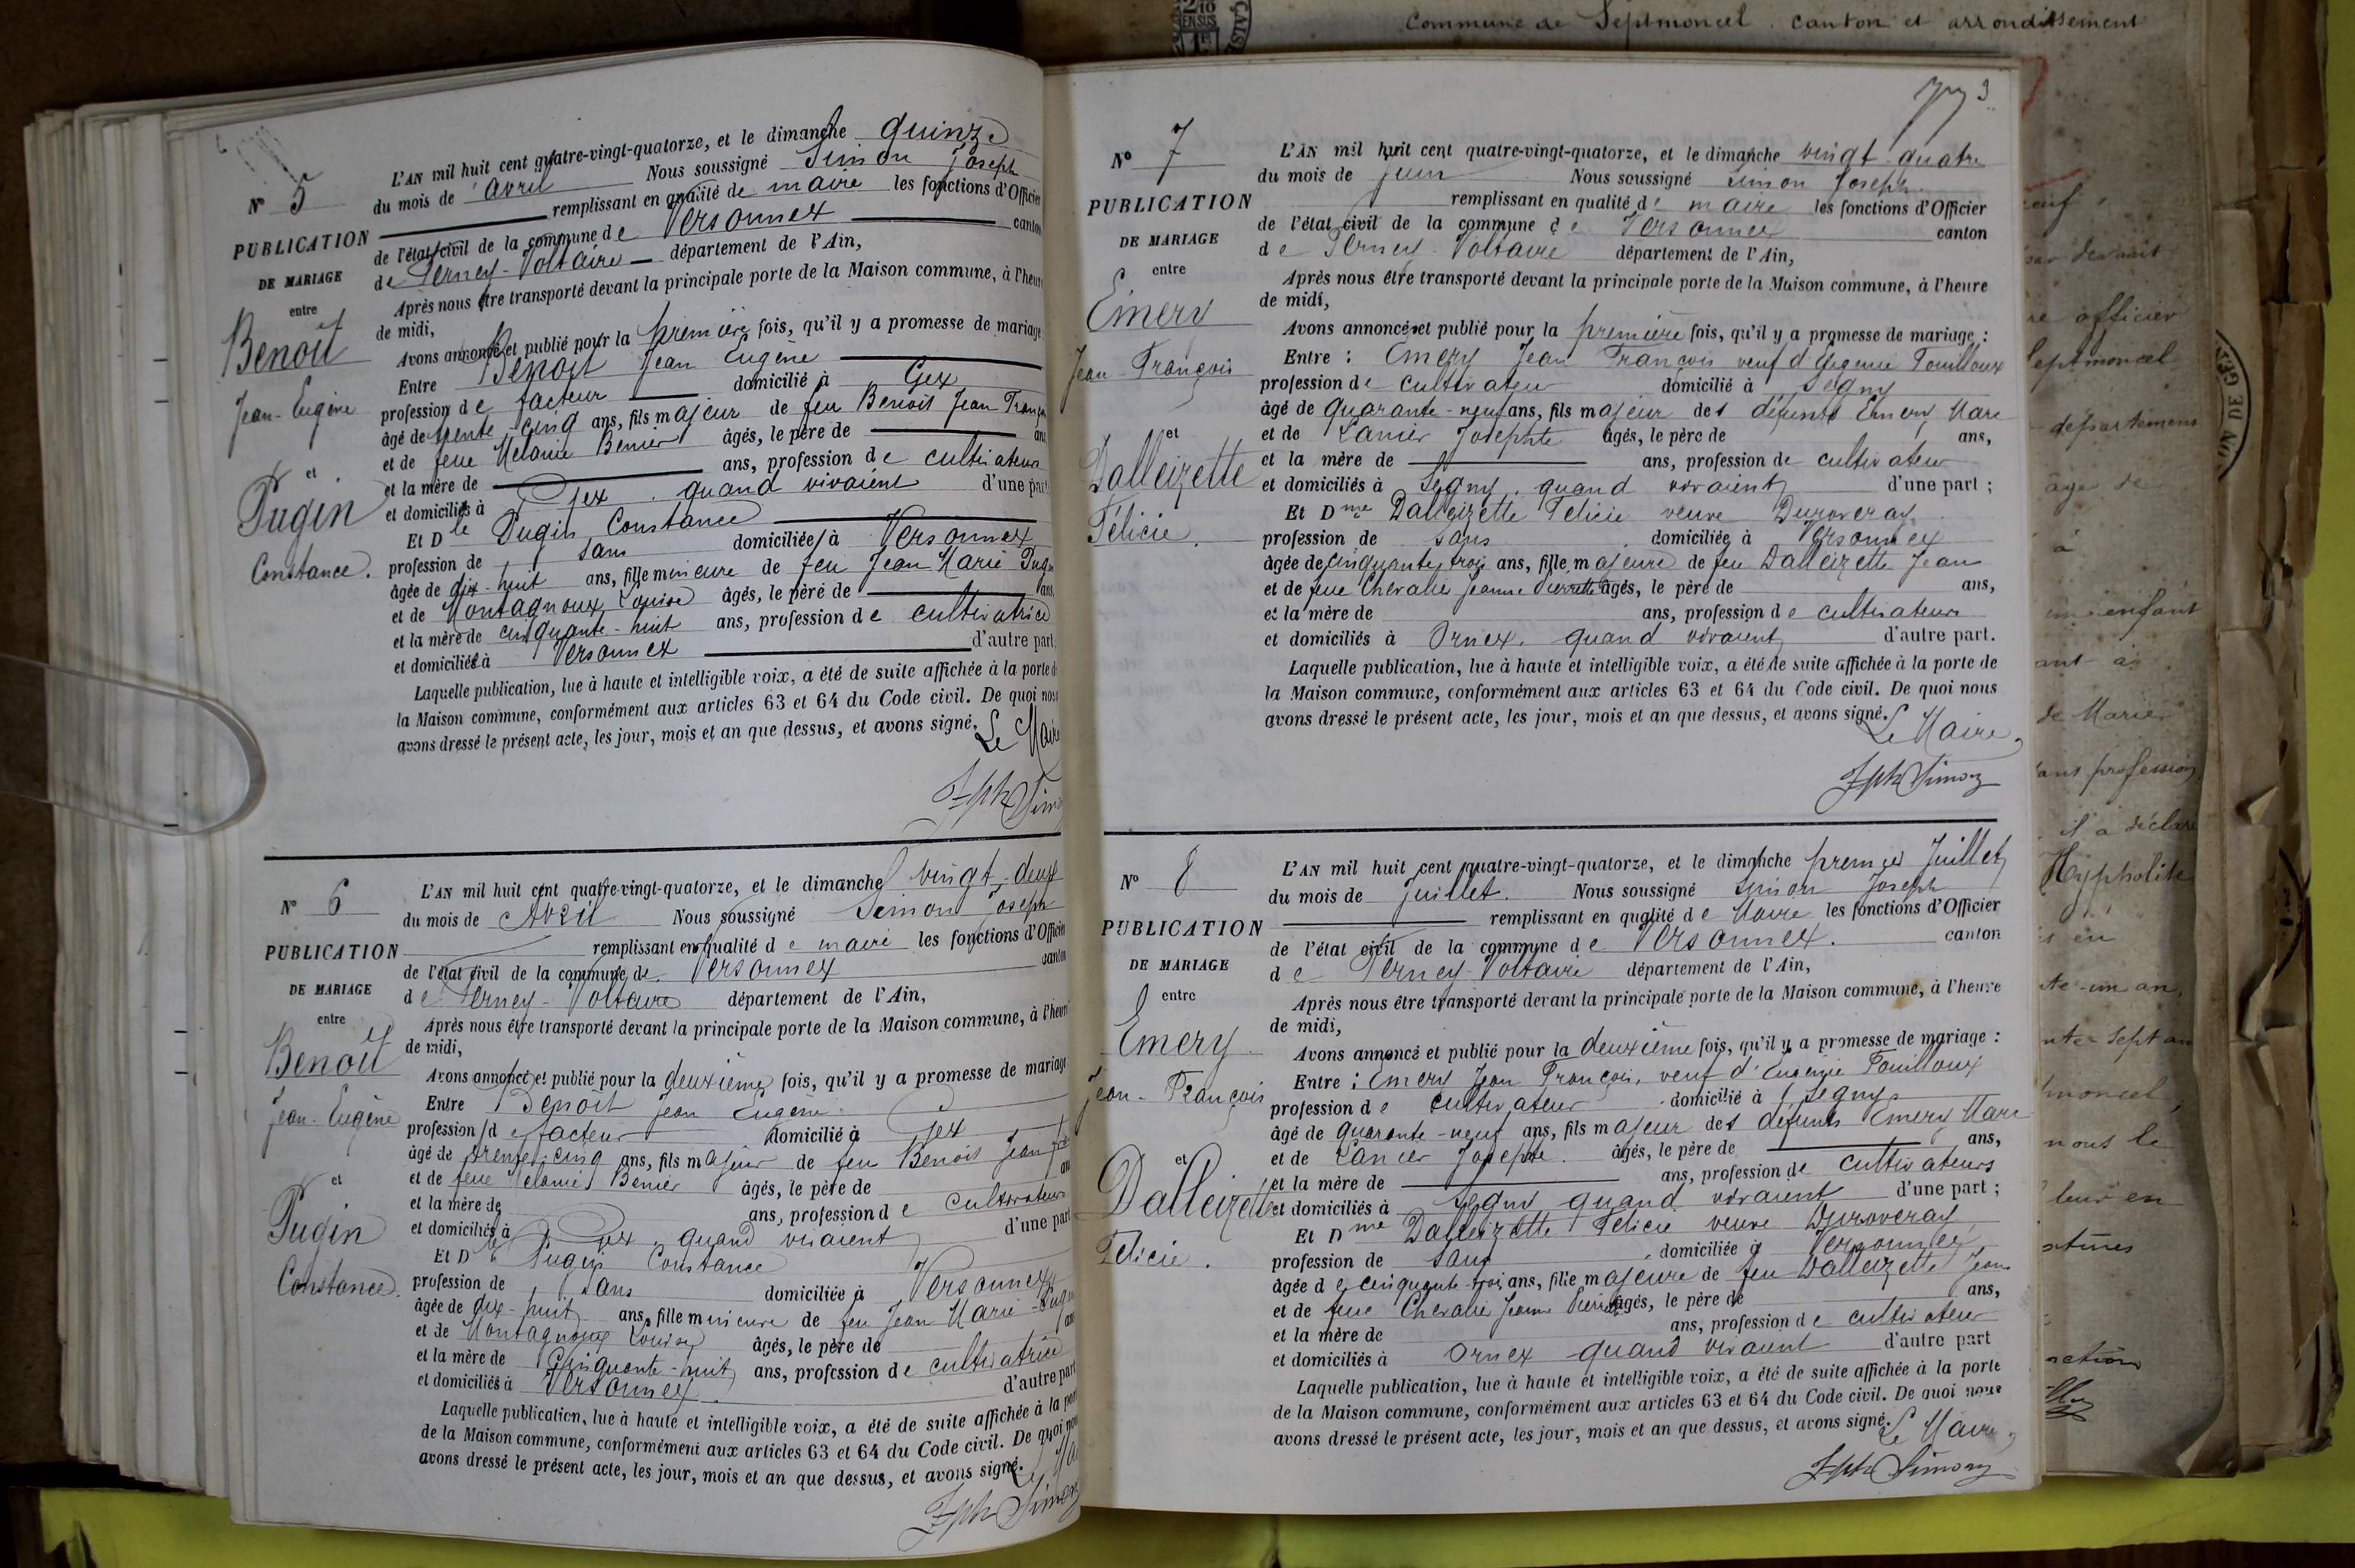 Commune de Septmoncel. canton et arrondissement
N° 5
PUBLICATION
DE MARIAGE
entre
Benoit
Jean-Eugène
et
Pugin
Constance.
L'AN mil huit cent quatre-vingt-quatorze, et le dimanche quinze
du mois de avril Nous soussigné Simon Joseph
remplissant en qualité de maire les fonctions d'Officier
de l'état civil de la commune de Versonnex canton
de Ferney-Voltaire département de l'Ain,
Après nous être transporté devant la principale porte de la Maison commune, à l'heure
de midi,
Avons annoncé et publié pour la première fois, qu'il y a promesse de mariage
Entre Benoit Jean Eugène
profession de facteur domicilié à Gex
âgé de trente-cinq ans, fils majeur de feu Benoit Jean Franç
et de feue Mélanie Benier âgés, le père de ans
et la mère de ans, profession de cultivateurs
et domiciliés à Gex. quand vivaient d'une part
Et Dlle Pugin Constance
profession de sans domiciliée à Versonnex
âgée de dix-huit ans, fille mineure de feu Jean Marie Pugin
et de Montagnoux Louise âgés, le père de ans
et la mère de cinquante-huit ans, profession de cultivatrice
et domiciliés à Versonnex d'autre part
Laquelle publication, lue à haute et intelligible voix, a été de suite affichée à la porte de
la Maison commune, conformément aux articles 63 et 64 du Code civil. De quoi nous
avons dressé le présent acte, les jour, mois et an que dessus, et avons signé.
Le Maire
Jph Simon
N° 6
PUBLICATION
DE MARIAGE
entre
Benoit
Jean-Eugène
et
Pugin
Constance.
L'AN mil huit cent quatre-vingt-quatorze, et le dimanche vingt-deux
du mois de Avril Nous soussigné Simon Joseph
remplissant en qualité de maire les fonctions d'Officier
de l'état civil de la commune de Versonnex canton
de Ferney-Voltaire département de l'Ain,
Après nous être transporté devant la principale porte de la Maison commune, à l'heure
de midi,
Avons annoncé et publié pour la deuxième fois, qu'il y a promesse de mariage
Entre Benoit Jean Eugène
profession de facteur domicilié à Gex
âgé de trente-cinq ans, fils majeur de feu Benoit Jean Fçois
et de feue Mélanie Benier âgés, le père de ans
et la mère de ans, profession de cultivateurs
et domiciliés à Gex. quand vivaient d'une part
Et Dlle Pugin Constance
profession de sans domiciliée à Versonnex
âgée de dix-huit ans, fille mineure de feu Jean Marie Pugin
et de Montagnoux Louise âgés, le père de ans
et la mère de Cinquante-huit ans, profession de cultivatrice
et domiciliés à Versonnex. d'autre part
Laquelle publication, lue à haute et intelligible voix, a été de suite affichée à la porte
de la Maison commune, conformément aux articles 63 et 64 du Code civil. De quoi nous
avons dressé le présent acte, les jour, mois et an que dessus, et avons signé.
Le Mai
Jph Simon
3
N° 7
PUBLICATION
DE MARIAGE
entre
Emery
Jean-François
et
Dalleizette
Félicie.
L'AN mil huit cent quatre-vingt-quatorze, et le dimanche vingt-quatre
du mois de juin Nous soussigné Simon Joseph
remplissant en qualité de maire les fonctions d'Officier
de l'état civil de la commune de Versonnex canton
de Ferney-Voltaire département de l'Ain,
Après nous être transporté devant la principale porte de la Maison commune, à l'heure
de midi,
Avons annoncé et publié pour la première fois, qu'il y a promesse de mariage :
Entre : Emery Jean François veuf d'Eugenie Fouilloux
profession de cultivateur domicilié à Segny
âgé de quarante-neuf ans, fils majeur des défunts Emery Marc
et de Lancier Josephte âgés, le père de ans,
et la mère de ans, profession de cultivateur
et domiciliés à Segny. quand vivaient d'une part ;
Et Dme Dalleizette Felicie veuve Duroveray
profession de sans domiciliée à Versonnex
âgée de cinquante trois ans, fille majeure de feu Dalleizette Jean
et de feue Chevalier Jeanne Pierrette âgés, le père de ans,
et la mère de ans, profession de cultivateurs
et domiciliés à Ornex. quand vivaient d'autre part.
Laquelle publication, lue à haute et intelligible voix, a été de suite affichée à la porte de
la Maison commune, conformément aux articles 63 et 64 du Code civil. De quoi nous
avons dressé le présent acte, les jour, mois et an que dessus, et avons signé.
Le Maire,
Jph Simon
N° 8
PUBLICATION
DE MARIAGE
entre
Emery
Jean-François
et
Dalleizette
Félicie.
L'AN mil huit cent quatre-vingt-quatorze, et le dimanche premier Juillet
du mois de juillet. Nous soussigné Simon Joseph
remplissant en qualité de Maire les fonctions d'Officier
de l'état civil de la commune de Versonnex. canton
de Ferney-Voltaire département de l'Ain,
Après nous être transporté devant la principale porte de la Maison commune, à l'heure
de midi,
Avons annoncé et publié pour la deuxième fois, qu'il y a promesse de mariage :
Entre : Emery Jean François, veuf d'Eugenie Fouilloux
profession de cultivateur domicilié à Segny
âgé de quarante-neuf ans, fils majeur des défunts Emery Marc
et de Lancier Josephte. âgés, le père de ans,
et la mère de ans, profession de cultivateurs
et domiciliés à Segny quand vivaient d'une part ;
Et Dme Dalleizette Félicie veuve Duroveray
profession de sans domiciliée à Versonnex
âgée de cinquante-trois ans, fille majeure de feu Dalleizette Jean
et de feue Chevalier Jeanne Pierrette âgés, le père de ans,
et la mère de ans, profession de cultivateur
et domiciliés à Ornex quand vivaient d'autre part
Laquelle publication, lue à haute et intelligible voix, a été de suite affichée à la porte
de la Maison commune, conformément aux articles 63 et 64 du Code civil. De quoi nous
avons dressé le présent acte, les jour, mois et an que dessus, et avons signé.
Le Maire,
Jph Simon
euf,
par devant
re officier
Septmoncel
département
âgé de
à
un enfant
ant à
de Marie
sans profession
il a déclaré
Hyppolite
te-un an,
nte sept an
moncel,
nous le
leur en